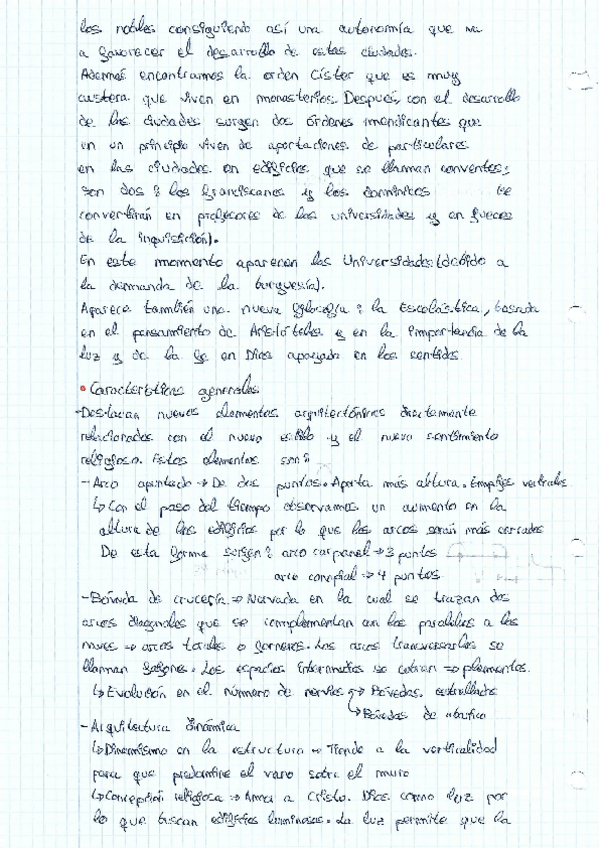 los nobles consiguiendo así una autonomía que va
a favorecer el desarrollo de estas ciudades.
Además encontramos la orden Císter que es muy
austera que viven en monasterios. Después, con el desarrollo
de las ciudades surgen dos órdenes mendicantes que
en un principio viven de aportaciones de particulares
en las ciudades en edificios que se llaman conventos;
son dos: los franciscanos y los dominicos se
convertirán en profesores de las universidades y en jueces
de la inquisición).
En este momento aparecen las Universidades (debido a
la demanda de la burguesía).
Aparece también una nueva filosofía: la Escolástica, basada
en el pensamiento de Aristóteles y en la importancia de la
luz y de la fe en Dios apoyada en los sentidos
• Características generales
- Destacan nuevos elementos arquitectónicos directamente
relacionados con el nuevo estilo y el nuevo sentimiento
religioso. Estos elementos son:
- Arco apuntado → De dos puntos. Aporta más altura. Empujes verticales
↳ Con el paso del tiempo observamos un aumento en la
altura de los edificios por lo que los arcos serán más cerrados
De esta forma surgen: arco carpanel → 3 puntos
arco conopial → 4 puntos
- Bóveda de crucería → Nervada en la cual se trazan dos
arcos diagonales que se complementan con los paralelos a los
muros → arcos torales o formeros. Los arcos transversales se
llaman fajones. Los espacios intermedios se cubren → plementos.
↳ Evolución en el número de nervios → Bóvedas estrelladas
↳ Bóvedas de abanico
- Arquitectura dinámica
↳ Dinamismo en la estructura → Tiende a la verticalidad
para que predomine el vano sobre el muro
↳ Concepción religiosa → Amar a Cristo. Dios como luz por
lo que buscan edificios luminosos. La luz permite que la